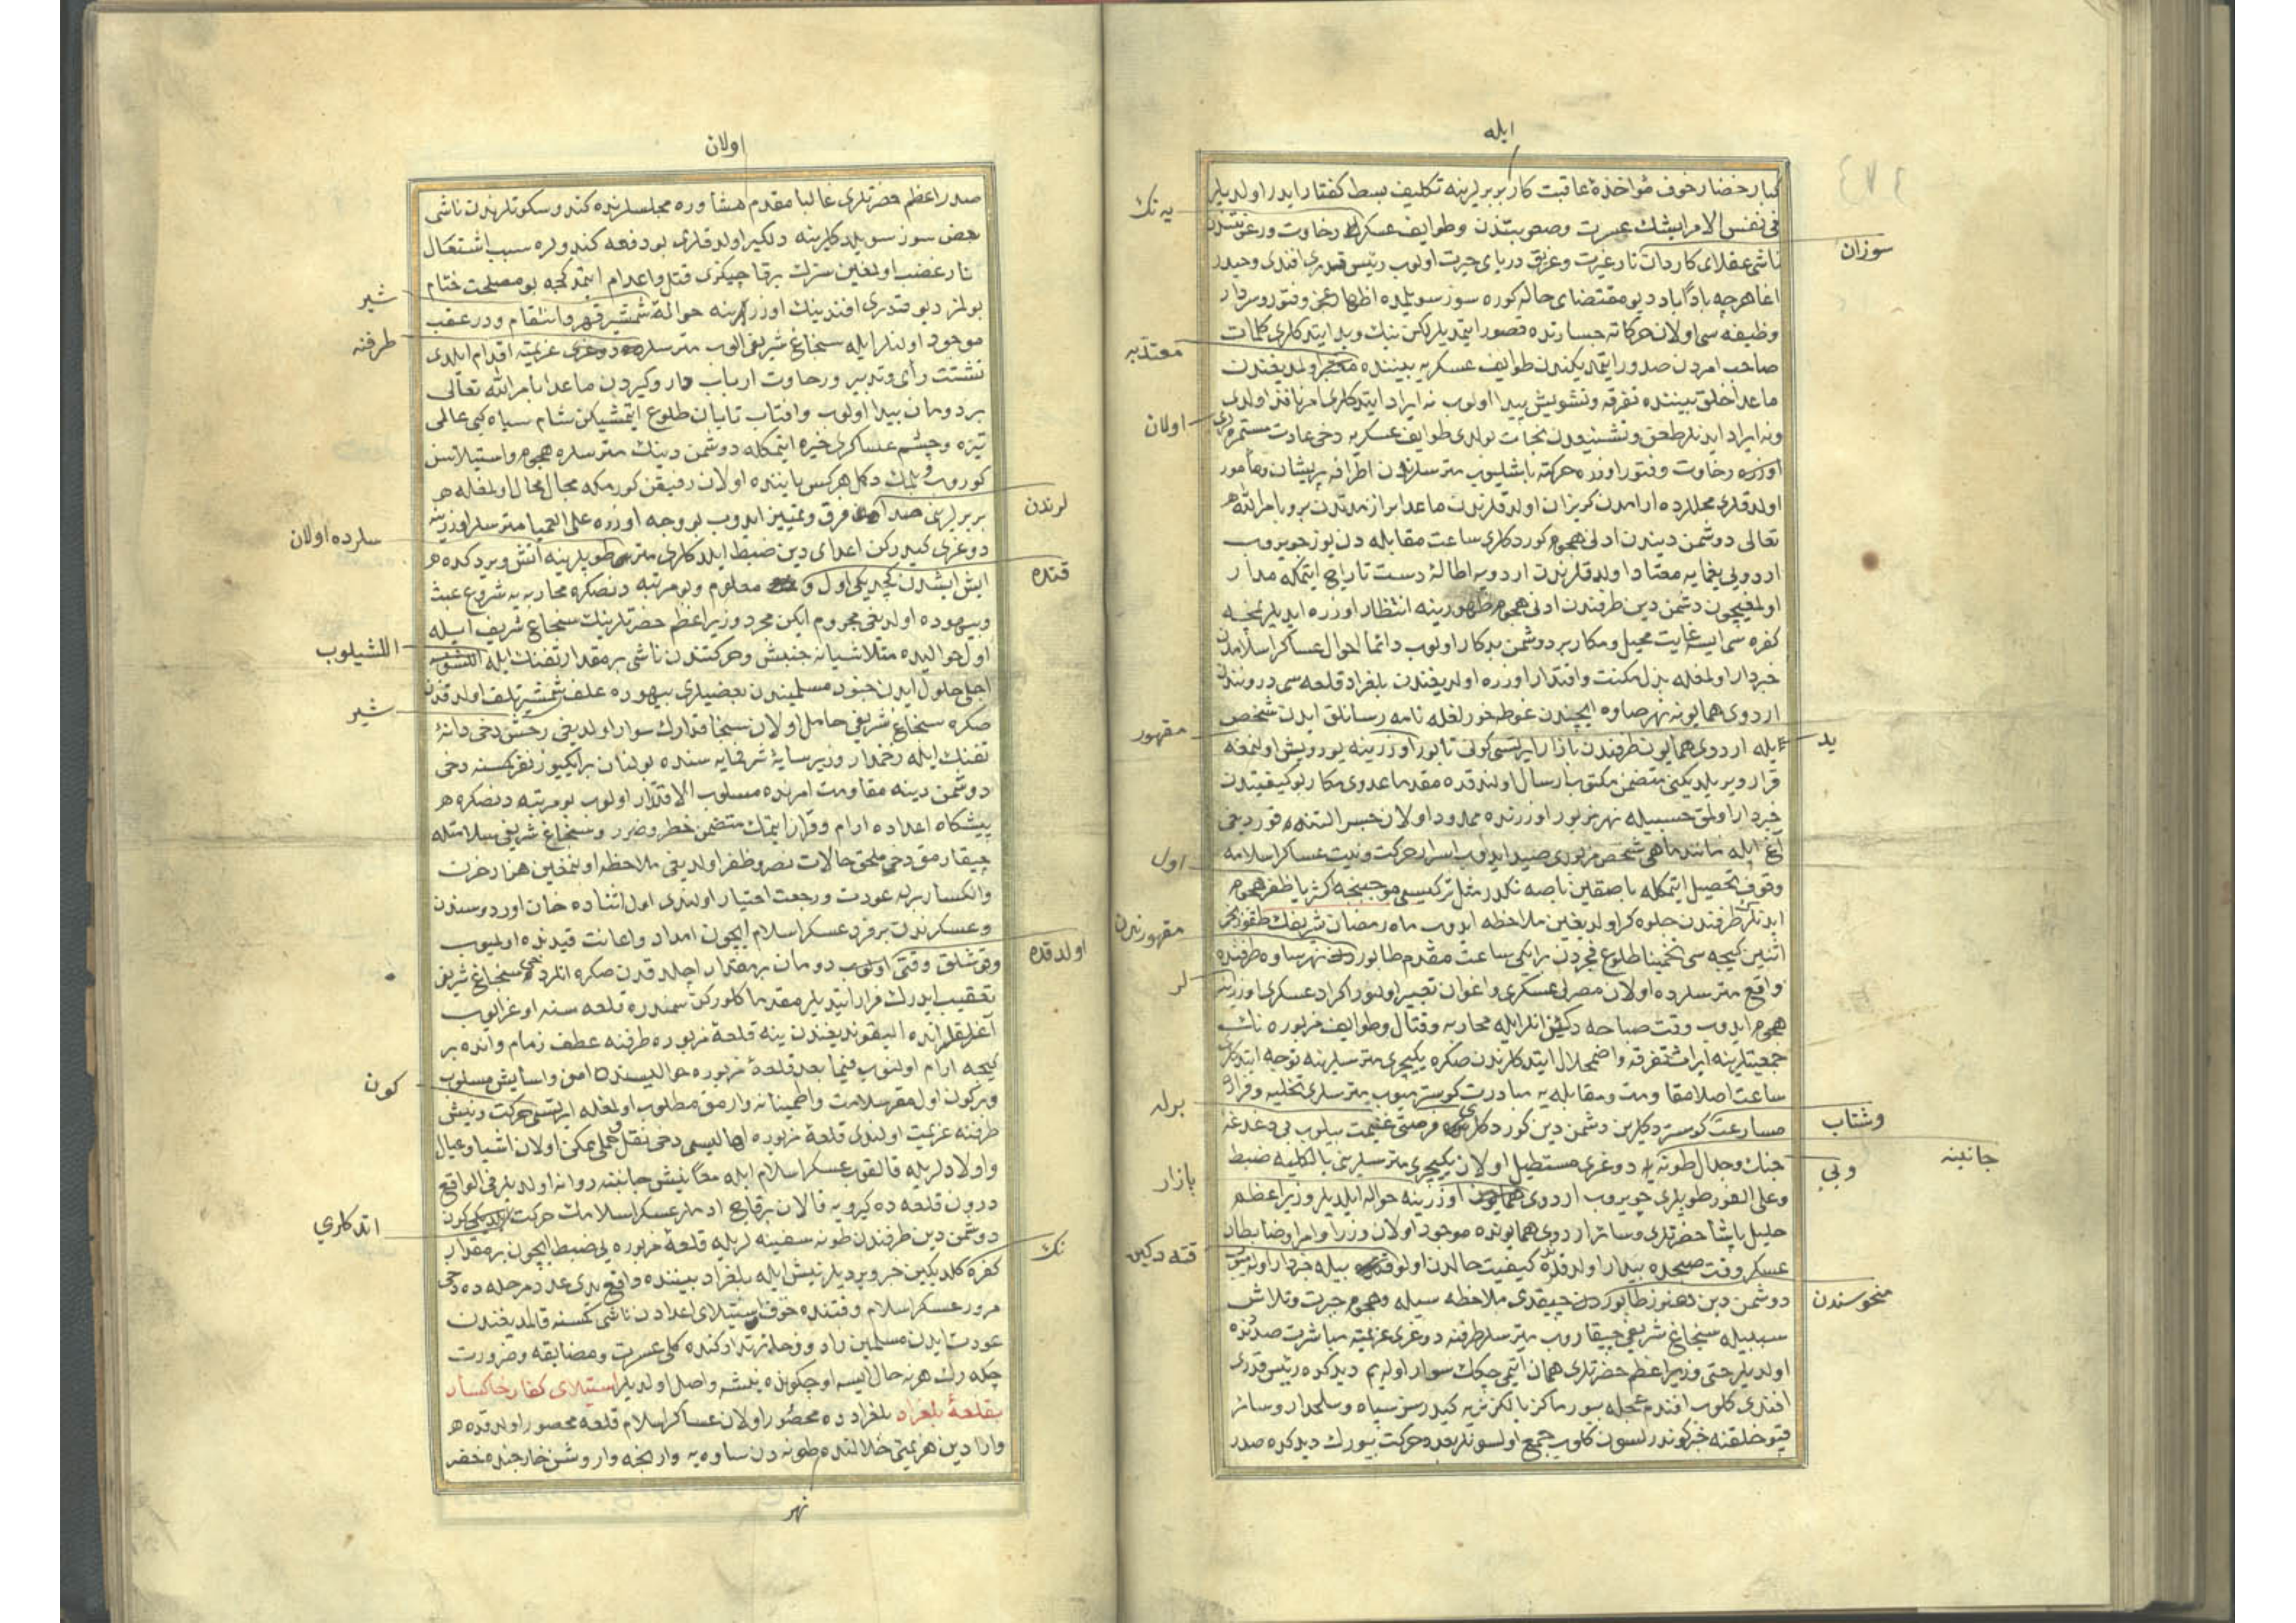 ایله
كبار حضار خوف مؤاخذۀ عاقبت كار بربرلرینه تكلیف بسط كفتار ایدر اولدیلر
یه نك
فی نفس الامر ایشك عسرت وصعوبتندن وطوایف عسكرك رخاوت ورغبتندن
سوزان
ناشی عقلای كاردان نار غیرت وغریق دریای حیرت اولوب رئیس قدری افندی وحیدر
اغا هرچه باداباد دیو مقتضای حاله كوره سوز سویلمده اظهار عجز وفتور وسردار
وظیفه سی اولان حركاته جسارتده قصور ایتمدیلر لكن نیك وبد ایتدكلری كلمات
معتدبه
صاحب امردن صدور ایتمدیكندن طوایف عسكریه بیننده معتبر اولمدیغندن
ماعدا خلق بیننده تفرقه وتشویش پیدا اولوب نه ایراد ایتدكلری امر نافذ اولدی
اولان
ونه ایراد ایدنلر طعن وتشنیعدن نجات بولدی طوایف عسكریه دخی عادت مستمره لری
اوزره رخاوت وفتور اوزره حركته باشلیوب متر سلرندن اطرافه پریشان ومأمور
اولدقلری محللرده ارامدن كریزان اولدقلرندن ماعدا براز مدتدن برو بامر الله
تعالی دوشمن دیندن ادنی هجوم كوردكلری ساعت مقابله دن یوز چویروب
اردویی یغمایه معتاد اولدقلرندن اردویه اطالۀ دست تاراج ایتمكه مدار
اولمغیچون دشمن دین طرفندن ادنی هجوم ظهورینه انتظار اوزره ایدیلر
كفره سی ایسه غایت محیل ومكار بر دوشمن بدكار اولوب دائما احوال عساكر اسلامدن
خبردار اولمغله بذل مكنت واقتدار اوزره اولدیغندن بلغراد قلعه سی دروننده
اردوی همایونه نهر صاوه ایچندن غوطه خورلغله نامه رسانلق ایدن شخص
مقهور
ید
ایله اردوی همایون طرفندن بازار ایرتسی كونی تابور اوزرینه یورویش اولنمغه
قرار ویریلدیكنی متضمن مكتوب ارسال اولندقده مقدما عدوی مكار بو كیفیتدن
خبردار اولمق حسبیله نهر مزبور اوزرنده ممدود اولان جسر التنده قوردیغی
آغ ایله مانند ماهی شخص مزبوری صید ایدوب اسرار حركت ونیت عساكر اسلامه
اول
وقوف تحصیل ایتمكله باصقین باصه نكدر مثل تركیسی موجبنجه اكثریا ظفر هجوم
ایدنلر طرفندن جلوه كر اولدیغین ملاحظه ایدوب ماه رمضان شریفك طقوزنجی
مقهورندن
اثنین كیجه سی تخمینا طلوع فجردن بر ایكی ساعت مقدم طابوردن نهر ساوه طرفنده
لر
واقع متر سلرده اولان مصرلی عسكری واعوان تعبیر اولنور اكراد عسكری اوزرینه
هجوم ایدوب وقت صباحه دكین انلر ایله محاربه وقتال وطوایف مزبوره نك
جمعیتلرینه ایراث تفرقه واضمحلال ایتدكلرندن صكره یكیچری متر سلرینه توجه ایتدكلری
ساعت اصلا مقاومت ومقابله یه مبادرت كوسترمیوب متر سلری تخلیه وفرار
برله
وشتاب
مسارعت كوستردكلرین دشمن دین كوردكلری كبی فرصتی غنیمت بیلوب بی دغدغه
جانبنه
جنك وجدال طونه یه دوغری مستطیل اولان یكیچری متر سلرینی بالكلیه ضبط
وبی
بازار
وعلی الفور طوپلری چویروب اردوی همایون اوزرینه حواله ایلدیلر وزیر اعظم
خلیل پاشا حضرتلری وسائر اردوی همایونده موجود اولان وزرا وامرا وضابطان
قته دكین
عسكر وقت صبحده بیدار اولدقده كیفیت حالدن اولوقته بیله خبردار اولمیوب
منحوسندن
دوشمن دین هنوز طابوردن چیقدی ملاحظه سیله وهجوم حیرت وتلاش
سببیله سنجاغ شریفی چیقاروب متر سلر طرفنه دوغری عزیمته مباشرت صددنده
اولدیلر حتی وزیر اعظم حضرتلری همان ایتمی چكك سوار اولەیم دیدكده رئیس قدری
افندی كلوب افندم عجله بیورماكز یالكز نریه كیدرسز سپاه وسلحدار وسائر
قپو خلقنه خبر كوندرلسون كلوب جمع اولسونلر بعده حركت بیورك دیدكده صدر
اولان
صدر اعظم حضرتلری غالبا مقدم مشاوره مجلسلرنده كندو سكوتلرندن ناشی
بعض سوز سویلدكلرینه دلكیر اولدقلری بو دفعه كندولره سبب اشتعال
نار غضب اولمغین سزك برقاچیكزی قتل واعدام ایتمدكجه بو مصلحت ختام
شیر
بولمز دیو قدری افندینك اوزرلرینه حوالۀ شمشیر قهر وانتقام ودر عقب
طرفنه
موجود اولنلر ایله سنجاغ شریفی الوب متر سلره دوغری عزیمته اقدام ایلدی
تشتت رأی وتدبیر ورخاوت ارباب دار وكیردن ماعدا بامر الله تعالی
بر دومان پیدا اولوب وافتاب تابان طلوع ایتمشیكن شام سیاه كبی عالمی
تیره وچشم عساكری خیره ایتمكله دوشمن دینك متر سلره هجوم واستیلاسن
كوروب بیلمك دكل هر كس یاننده اولان رفیقن كورمكه مجال محال اولمغله
لرندن
بربرلرینی صدادن فرق وتمییز ایدوب بو وجه اوزره علی العمیا متر سلر اوزرینه
سلرده اولان
دوغری كیدركن اعدای دین ضبط ایلدكلری متر س طوپلرینه آتش ویردكده
قتده
ایش ایشدن كچدیكی اول و معلوم وبو مرتبه دنصكره محاربه یه شروع عبث
وبیهوده اولدیغی مجزوم ایكن مجرد وزیر اعظم حضرتلرینك سنجاغ شریف ایله
اللشیلوب
اول حوالیده متلاشیانه جنبش وحركتندن ناشی بر مقدار تفنك ایله
اجلی حلول ایدن جنود مسلمیندن بعضیلری بیهوده علف شمشیر تلف اولدقدن
شیر
صكره سنجاغ شریفی حامل اولان سنجاقدارك سوار اولدیغی رخش دخی دانۀ
تفنك ایله زخمدار وزیر سایۀ شرفپایه سنده بولنان بر ایكیوز نفر كمسنه دخی
دوشمن دینه مقاومت امرنده مسلوب الاقتدار اولوب بو مرتبه دنصكره
پیشكاه اعداده ارام وقرار ایتمك متضمن خطر وضرر وسنجاغ شریفی سلامتله
چیقارمق دخی ملحق حالات نصر وظفر اولدیغی ملاحظه اولنمغین هزار حزن
وانكسار برله عودت ورجعت اختیار اولندی اول اثناده خان اوردوسندن
وعسكرندن بر فرد عسكر اسلام ایچون امداد واعانت قیدنده اولمیوب
اولدقده
وقوشلق وقتی اولوب دومان بر مقدار اچلدقدن صكره انلر دخی سنجاغ شریفی
تعقیب ایدرك فرار ایتدیلر مقدما كلوركن سمندره قلعه سنه اوغرایوب
آغرلقلر انده الیقوندیغندن ینه قلعۀ مزبوره طرفنه عطف زمام وانده بر
كیجه ارام اولنوب فیما بعد قلعۀ مزبوره حوالیسنده امن واسایش مسلوب
كون
وبر كون اول مقر سلامت واطمینانه وارمق مطلوب اولمغله ایرتسی حركت ونیش
طرفنه عزیمت اولندی قلعۀ مزبوره اهالیسی دخی نقل وحملی ممكن اولان اشیا وعیال
واولادلریله قالقوب عسكر اسلام ایله معا نیش جانبنه روانه اولدیلر فی الواقع
درون قلعه ده كیرویه قالان برقاچ ادملر عسكر اسلامك حركت ایتدیكی كون
اتدكلری
نك
دوشمن دین طرفندن طونه سفینه لریله قلعۀ مزبوره یی ضبط ایچون بر مقدار
كفره كلدیكین خبر ویردیلر نیش ایله بلغراد بیننده واقع یدی عدد مرحله ده دخی
مرور عسكر اسلام وقتنده خوف استیلای اعدادن ناشی كمسنه قالمدیغندن
عودت ایدن مسلمین زاد وزخله تداركنده كلی عسرت ومضایقه وضرورت
چكەرك هر نه حال ایسه اوچ كونده نیشه واصل اولدیلر استیلای كفار خاكسار
بقلعۀ بلغراد بلغراد ده محصور اولان عساكر اسلام قلعه محصور اولدقده
واژا دین هزیمتی خلالنده طونه دن ساوه یه وارنجه واروشن خارجنده حفر
نهر